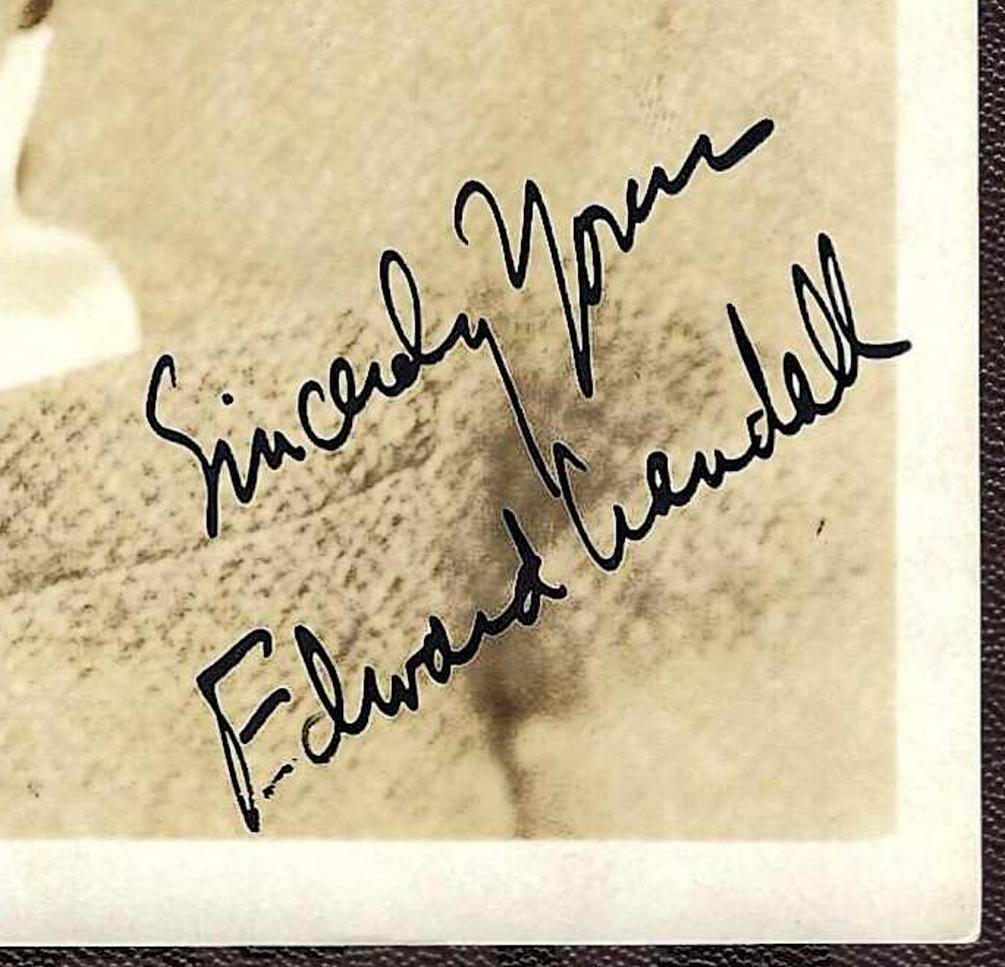 Sincerely Yours
Edward Crandall